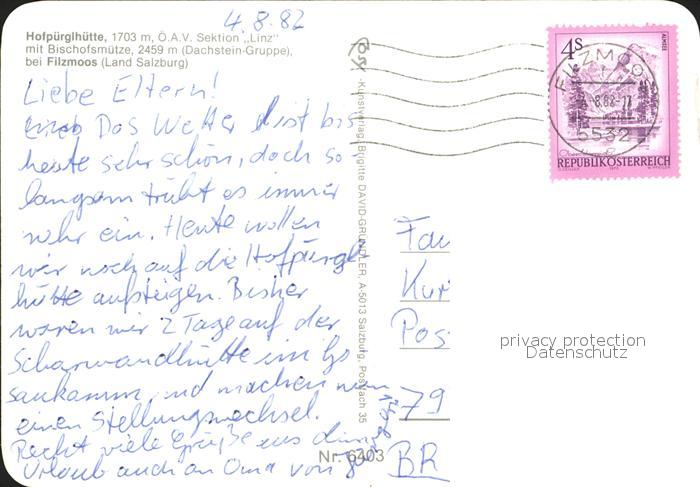 4.8.82
Hofpürglhütte, 1703 m, Ö.A.V. Sektion „Linz"
mit Bischofsmütze, 2459 m (Dachstein-Gruppe),
bei Filzmoos (Land Salzburg)
Liebe Eltern!
Das Wetter ist bis
heute sehr schön, doch so
langsam trübt es immer
mehr ein. Heute wollen
wir noch auf die Hofpürgl
hütte aufsteigen. Bisher
waren wir 2 Tage auf der
Scharwandhütte im Go
saukamm, und machen nun
einen Stellungswechsel.
Recht viele Grüße aus dem
Urlaub auch an Oma von
Kunstverlag Brigitte DAVID-GRUNDLER, A-5013 Salzburg, Postfach 35
Nr. 6403
4S
ALMSEE
REPUBLIK ÖSTERREICH
FILZMOOS
5532
Fam
Kur
Pos
79
BR
privacy protection
Datenschutz